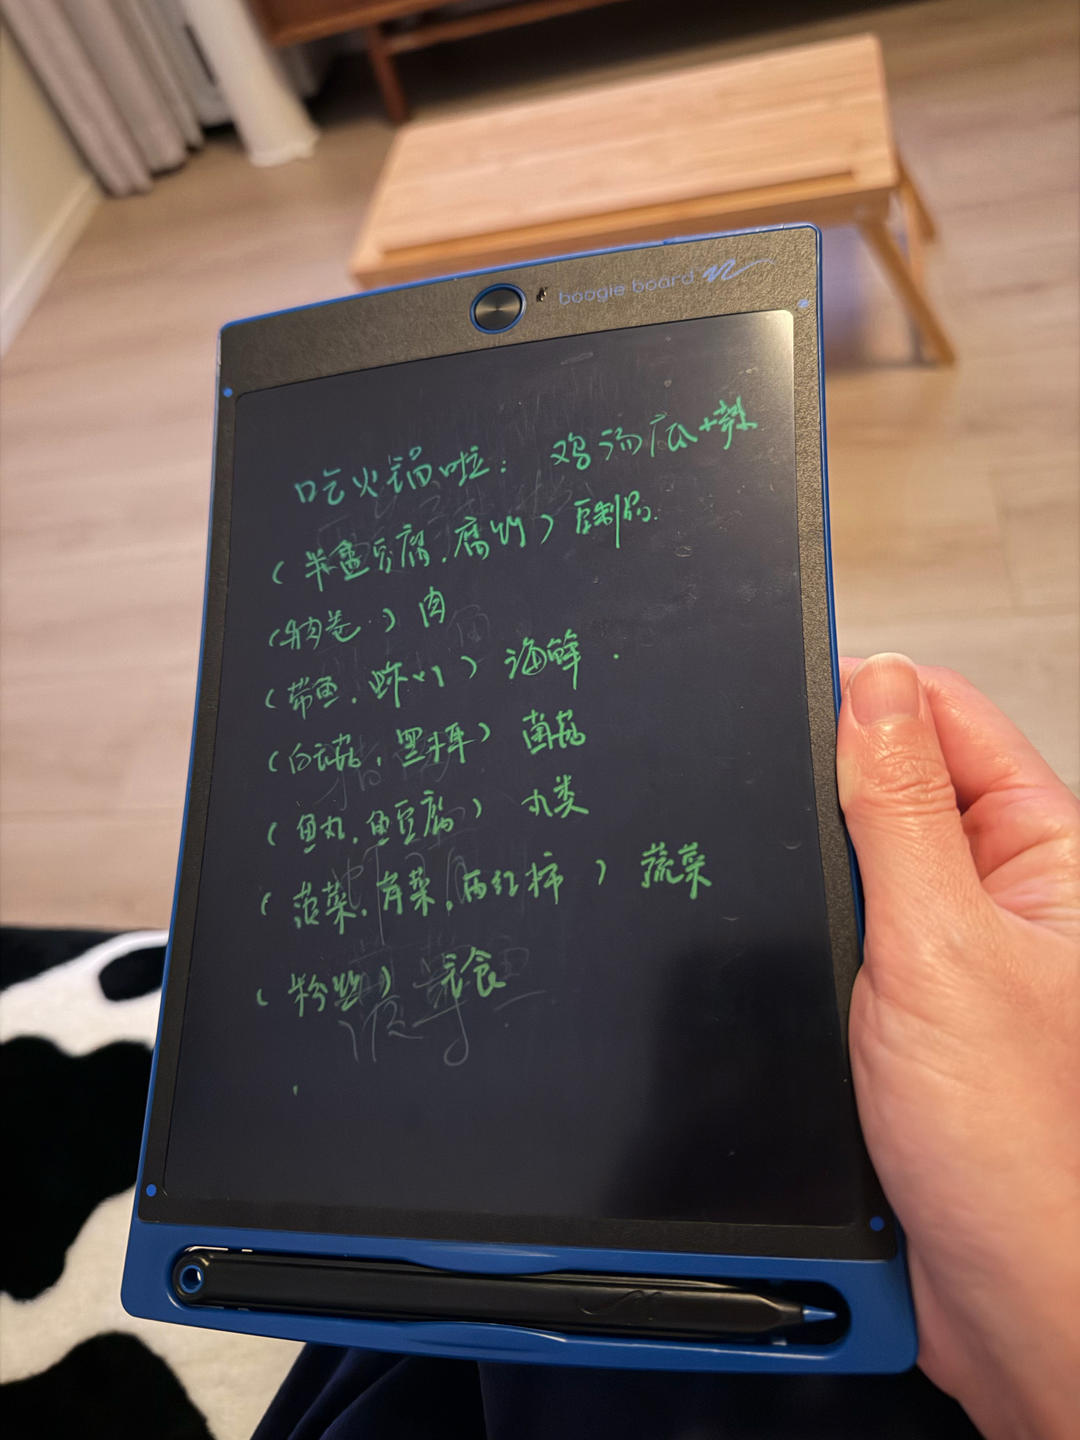 boogie board
吃火锅啦: 鸡汤底+辣
(半盒豆腐,腐竹)豆制品.
(肉卷.)肉
(带鱼,虾×1)海鲜.
(白菇,黑木耳)菌菇
(鱼丸,鱼豆腐)丸类
(菠菜,青菜,西红柿)蔬菜
(粉丝)主食